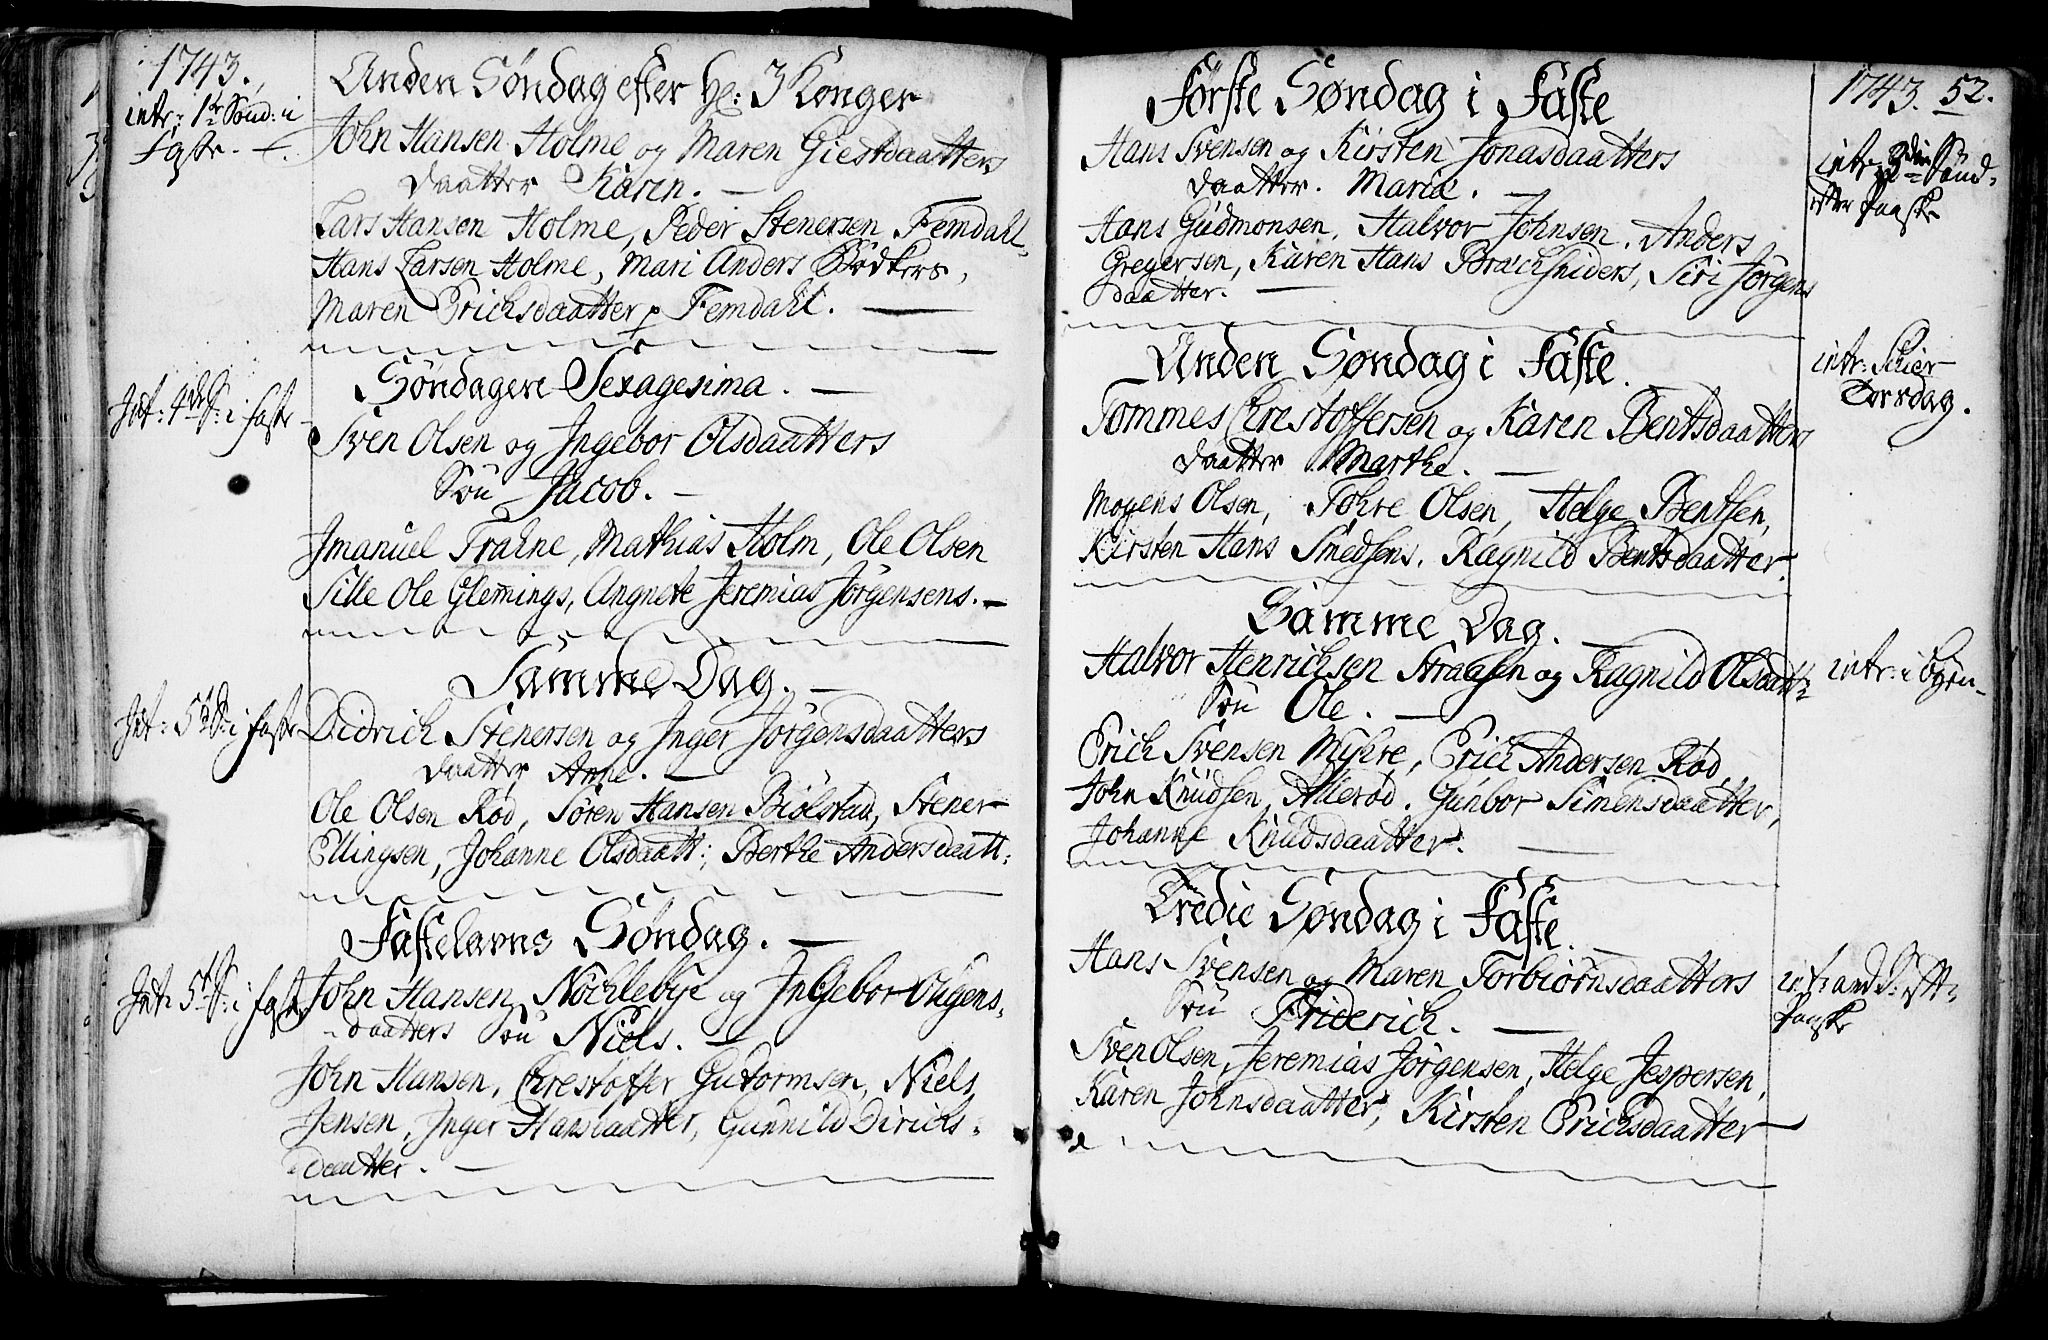 1743.
intr: 1te Sönd: i
Faste.
Anden Söndag efter H: 3 Konger
John Hansen Holme og Maren Giestdaatters
Daatter Karen.
Lars Hansen Holme, Peder Stenersen Femdahl,
Hans Larsen Holme, Mari Anders Bödkers,
Maren Erichsdaatter p Femdahl.
Int: 4de S: i faste
Söndagen Sexagesima.
Sven Olsen og Ingebor Olsdaatters
Sön Jacob.
Imanuel Trahne, Mathias Holm, Ole Olsen
Sille Ole Glemings, Angnete Jeremias Jörgensens.
Samme Dag.
Int: 5te S: i faste
Didrich Stenersen og Inger Jörgensdaatters
Daatter Anne.
Ole Olsen Röd, Sören Hansen Biölstad, Stener
Ellingsen, Johanne Olsdaatt:, Berthe Andersdaatt:
Fastelavns Söndag.
Int: 5te S: i faste
John Hansen Nöchlebye og Ingebor
daatters Sön Niels.
John Hansen, Chrestoffer Gutormsen, Niels
Jensen, Inger Hansdaatter, Gunnild Dirichs-
daatter.
1743. 52.
Förste Söndag i Faste
intr: 2den Sönd-
efter Paaske
Hans Svensen og Kirsten Jonasdaatters
Daatter. Marie.
Hans Gudmonsen, Halvor Johnsen, Anders
Gregersen, Karen Hans Brochsniders, Siri Jörgens
daatter.
Anden Söndag i Faste.
intr: Schier
Torsdag.
Tommes Chrestoffersen og Karen Bentsdaatters
Daatter Marthe.
Mogens Olsen, Tohre Olsen, Helge Bentsen,
Kirsten Hans Smedsens, Ragnild Bentsdaatter.
Samme Dag.
Halvor Henrichsen Straasen og Ragnild Olsdaatt:
intr: i byen
Sön Ole.
Erich Svensen Myhre, Erich Andersen Röd,
John Knudsen Alleröd, Gunbor Simensdaatter,
Johanne Knudsdaatter.
Tredie Söndag i Faste.
Hans Svensen og Maren Torbiörnsdaatters
intr: and S: eft:
Paaske
Sön Friderich.
Sven Olsen, Jeremias Jörgensen, Helge Jespersen,
Karen Johnsdaatter, Kirsten Erichsdaatter